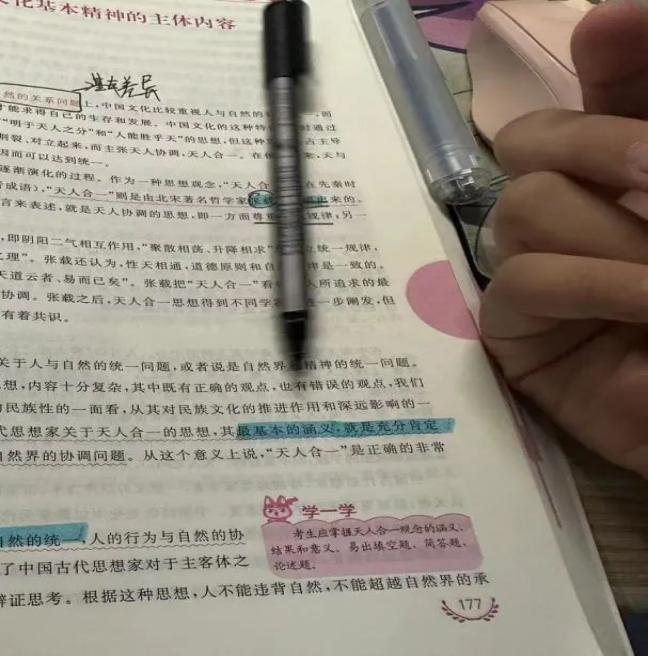 化基本精神的主体内容
然的关系问题上，中国文化比较重视人与自然的
才能求得自己的生存和发展。中国文化的这种特
“明于天人之分”和“人能胜乎天”的思想，但这种
割裂、对立起来，而主张天人协调，天人合一。在
因而可以达到统一。
逐渐演化的过程。作为一种思想观念，“天人合 在先秦时
成语），“天人合一”则是由北宋著名哲学家 来的。
言来表述，就是天人协调的思想，即一方面尊 规律；另一
，即阴阳二气相互作用，“聚散相荡、升降相求” 统一规律，
之理”。张载还认为，性天相通，道德原则和自 律是一致的。
天道云者、易而已矣”。张载把“天人合一”看 人所追求的最
协调。张载之后，天人合一思想得到不同学 进一步阐发，但
有着共识。
关于人与自然的统一问题，或者说是自然界 精神的统一问题。
想，内容十分复杂，其中既有正确的观点，也有错误的观点，我们
民族性的一面看，从其对民族文化的推进作用和深远影响的一
代思想家关于天人合一的思想，其最基本的涵义，就是充分肯定
自然界的协调问题。从这个意义上说，“天人合一”是正确的非常
学一学
考生应掌握天人合一观念的涵义、
结果和意义。易出填空题、简答题、
论述题。
自然的统一，人的行为与自然的协
了中国古代思想家对于主客体之
辩证思考。根据这种思想，人不能违背自然，不能超越自然界的承
177